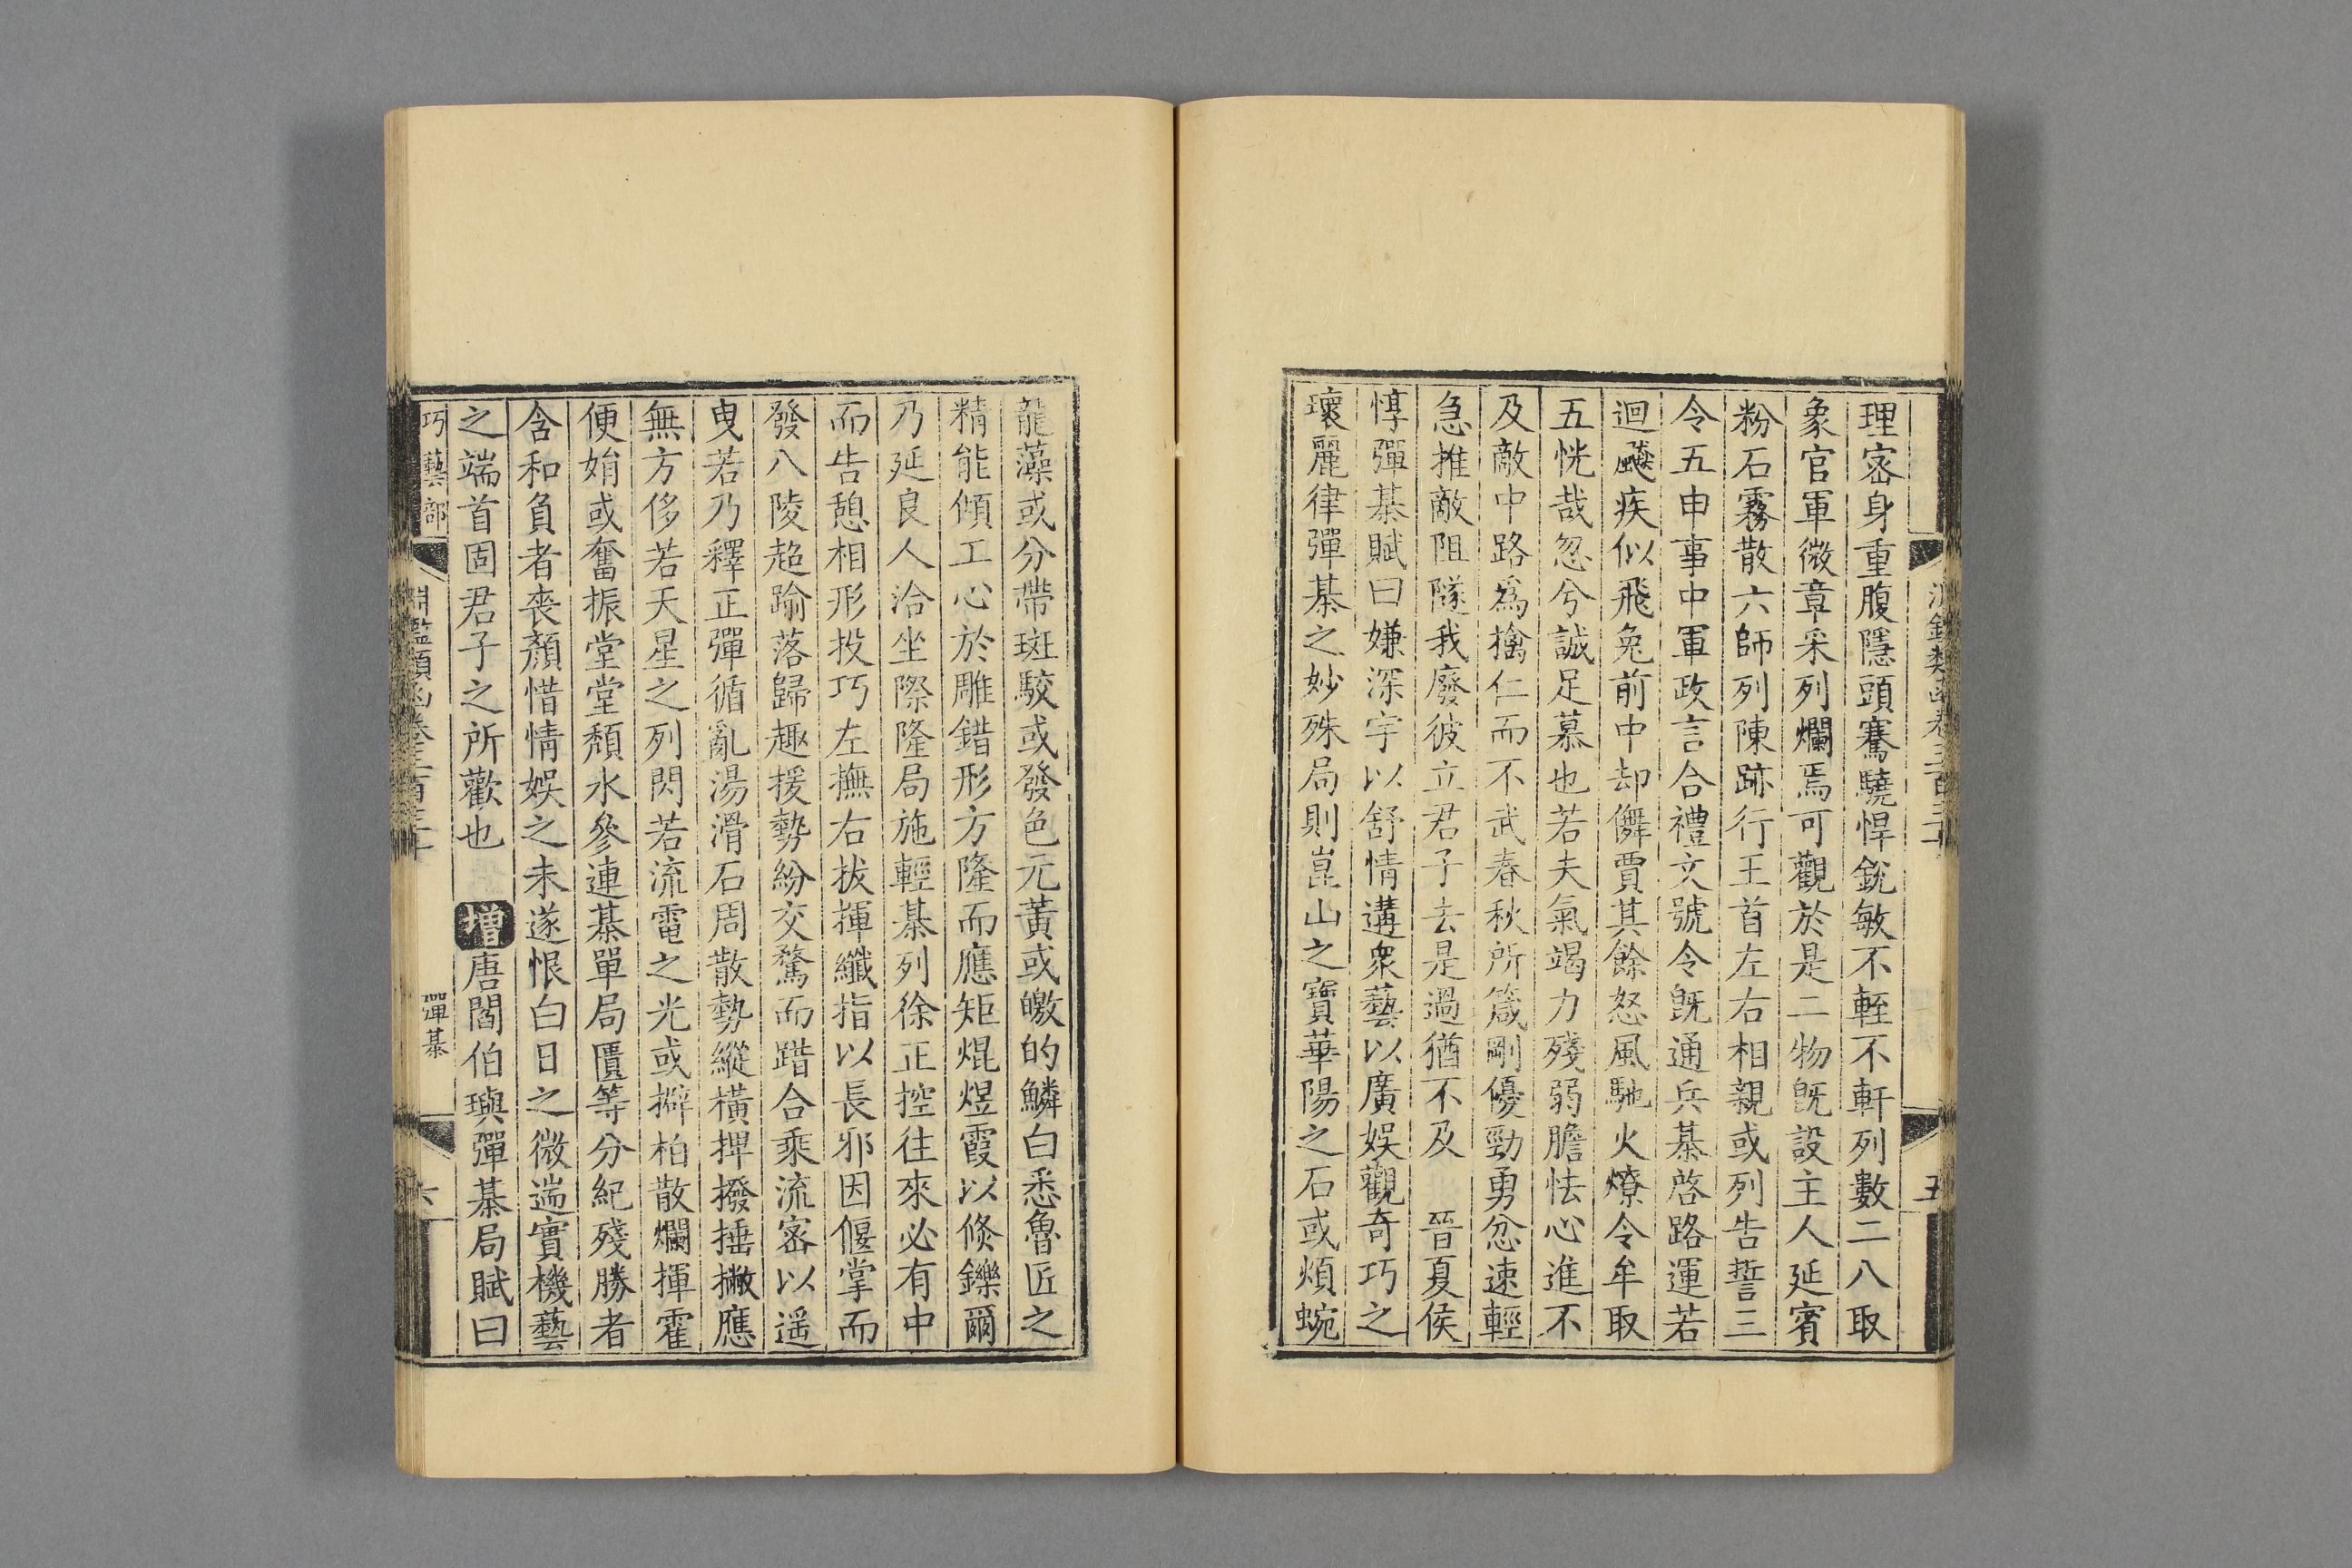 理密身重腹隱頭騫驍悍銳敏不輊不軒列數二八取
象官軍微章采列爛焉可觀於是二物旣設主人延賓
粉石霧散六師列陳跡行王首左右相親或列告誓三
令五申事中軍政言合禮文號令旣通兵棊啓路運若
迴飈疾似飛兔前中却儛賈其餘怒風馳火燎令牟取
五恍哉忽兮誠足慕也若夫氣竭力殘弱膽怯心進不
及敵中路為擒仁而不武春秋所箴剛優勁勇忿速輕
急推敵阻隧我廢彼立君子去是過猶不及 晉夏侯
惇彈棊賦曰嫌深宇以舒情遘衆藝以廣娛觀奇巧之
瓌麗律彈棊之妙殊局則崑山之寶華陽之石或煩蜿
龍藻或分帶斑駮或發色元黃或皦的鱗白悉魯匠之
精能傾工心於雕錯形方隆而應矩焜煜霞以倏鑠爾
乃延良人洽坐際隆局施輕棊列徐正控往來必有中
而告憩相形投巧左撫右拔揮纖指以長邪因偃掌而
發八陵超踰落歸趣援勢紛交騖而踖合乘流密以遥
曳若乃釋正彈循亂湯滑石周散勢縱橫捭撥捶撇應
無方侈若天星之列閃若流電之光或擗柏散爛揮霍
便娟或奮振堂堂頹水參連棊單局匱等分紀殘勝者
含和負者喪顏惜情娛之未遂恨白日之微遄實機藝
之端首固君子之所歡也 增唐閻伯璵彈棊局賦曰
巧藝部 淵鑑類函卷三百三十 彈棊 六